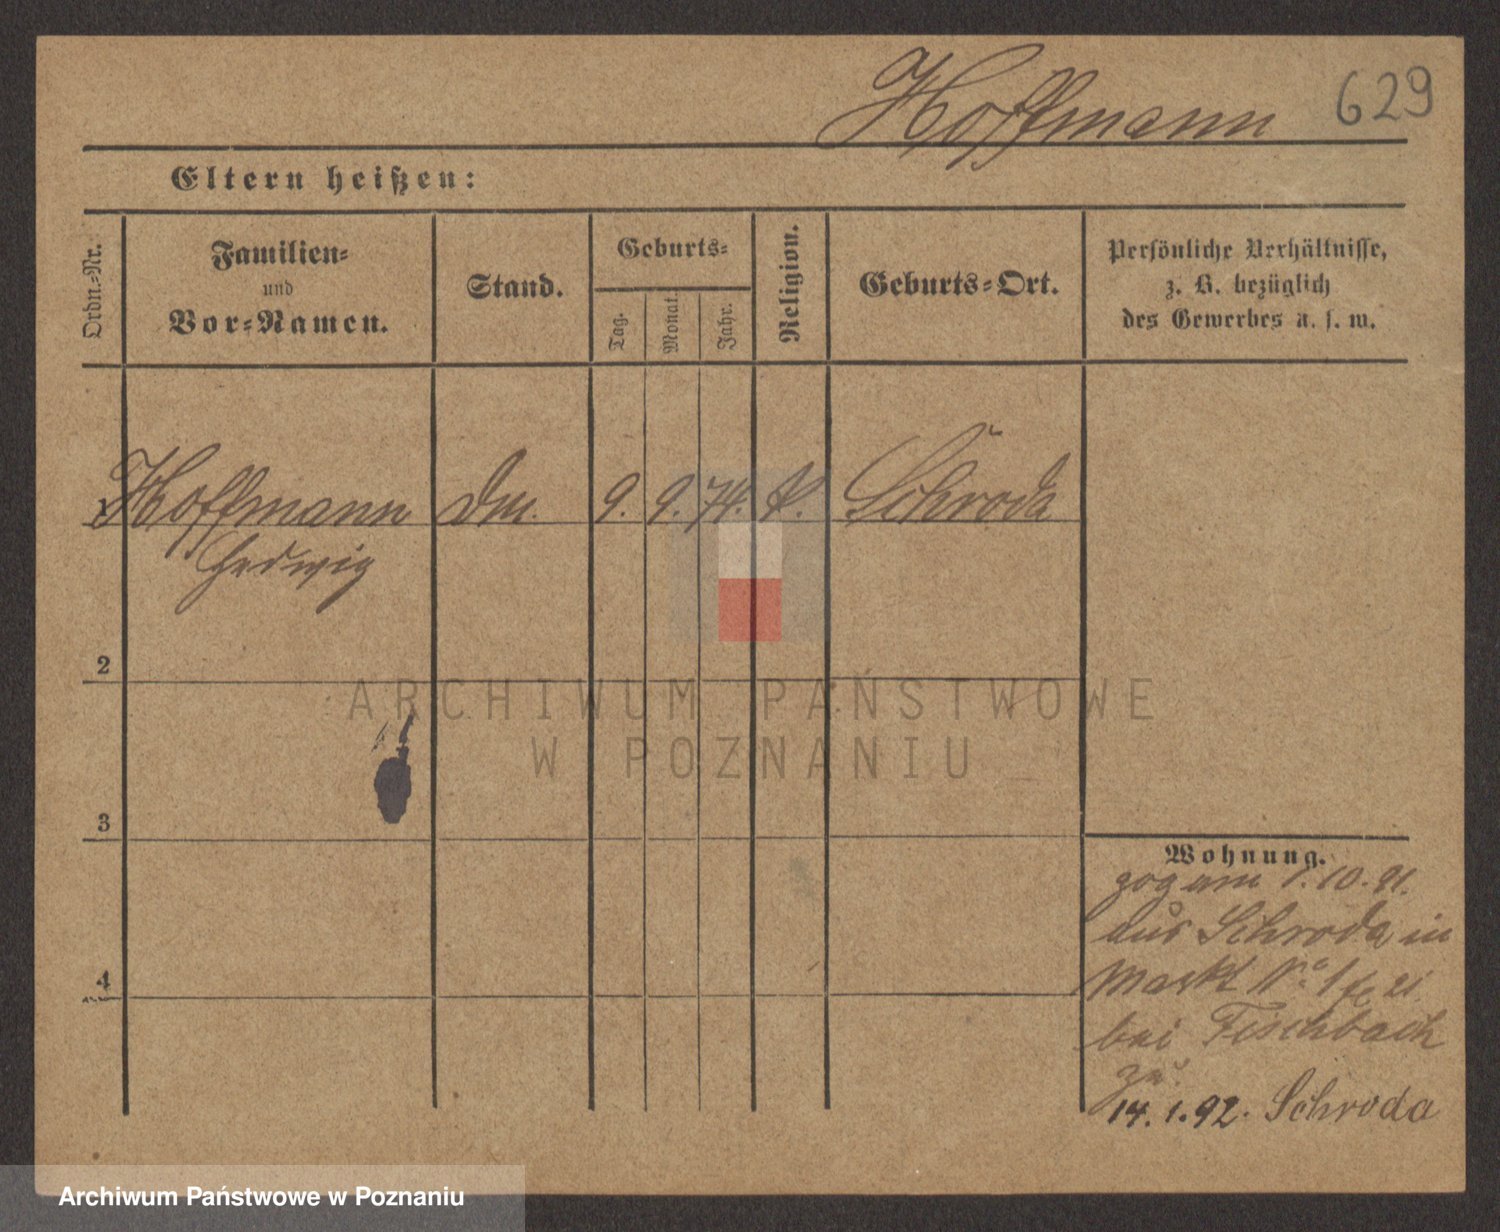 Hoffmann 629
Eltern heißen:
Ordn.-Nr.
Familien-
und
Vor-Namen.
Stand.
Geburts-
Tag.
Monat.
Jahr.
Religion.
Geburts-Ort.
Persönliche Verhältnisse,
z. B. bezüglich
des Gewerbes u. s. w.
Hoffmann
Hedwig
9. 9. 74.
Schroda
2
3
4
Wohnung.
zog am 1.10.91.
aus Schroda in
Markt No 1
bei Fischbach
zu.
14.1.92. Schroda
ARCHIWUM PAŃSTWOWE
W POZNANIU
Archiwum Państwowe w Poznaniu